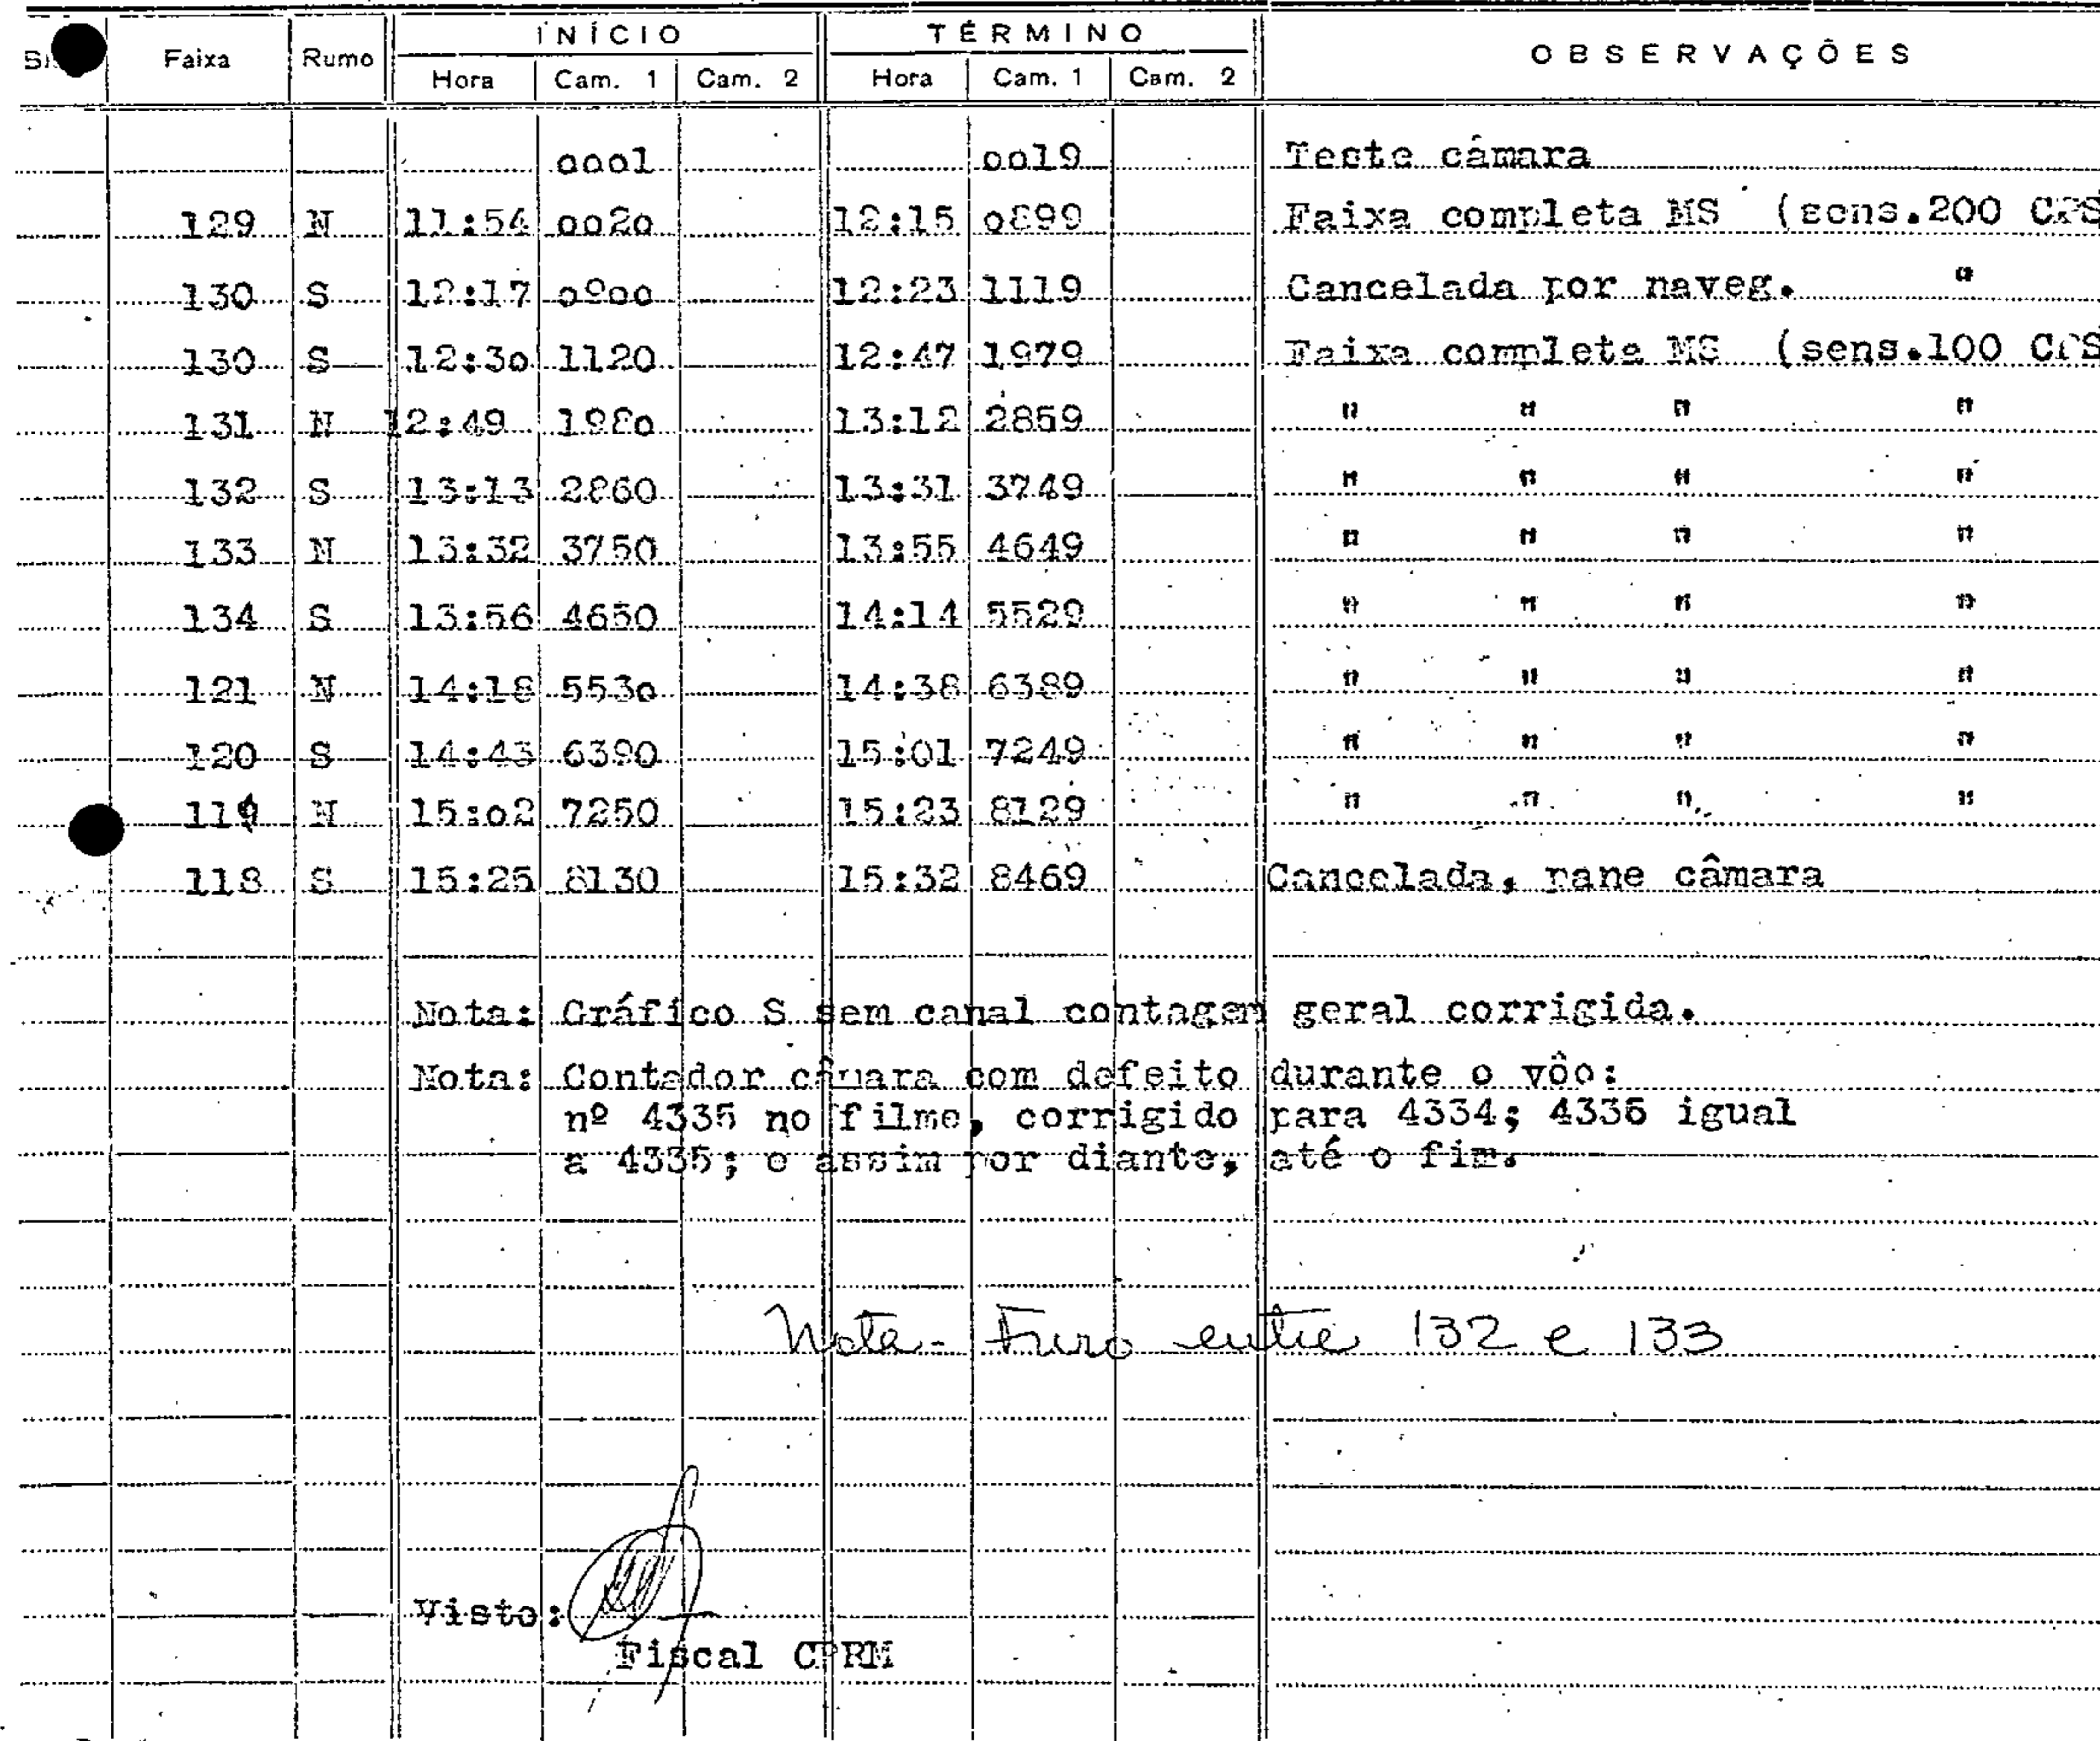 Faixa Rumo INÍCIO TÉRMINO OBSERVAÇÕES
Hora Cam. 1 Cam. 2 Hora Cam. 1 Cam. 2
ooo1 oo19 Teste câmara
129 N 11:54 oo2o 12:15 o899 Faixa completa MS (sens.200 CPS
130 S 12:17 o9oo 12:23 1119 Cancelada por naveg. "
130 S 12:3o 1120 12:47 1979 Faixa completa MS (sens.100 CPS
131 N 12:49 198o 13:12 2859 " " " "
132 S 13:13 2860 13:31 3749 " " " "
133 N 13:32 3750 13:55 4649 " " " "
134 S 13:56 4650 14:14 5529 " " " "
121 N 14:18 553o 14:38 6389 " " " "
120 S 14:43 6390 15:01 7249 " " " "
119 N 15:o2 7250 15:23 8129 " " " "
118 S 15:25 8130 15:32 8469 Cancelada, pane câmara
Nota: Gráfico S sem canal contagem geral corrigida.
Nota: Contador câmara com defeito durante o vôo:
nº 4335 no filme, corrigido para 4334; 4336 igual
a 4335; e assim por diante, até o fim.
Nota - Furo entre 132 e 133
Visto:
Fiscal CPRM